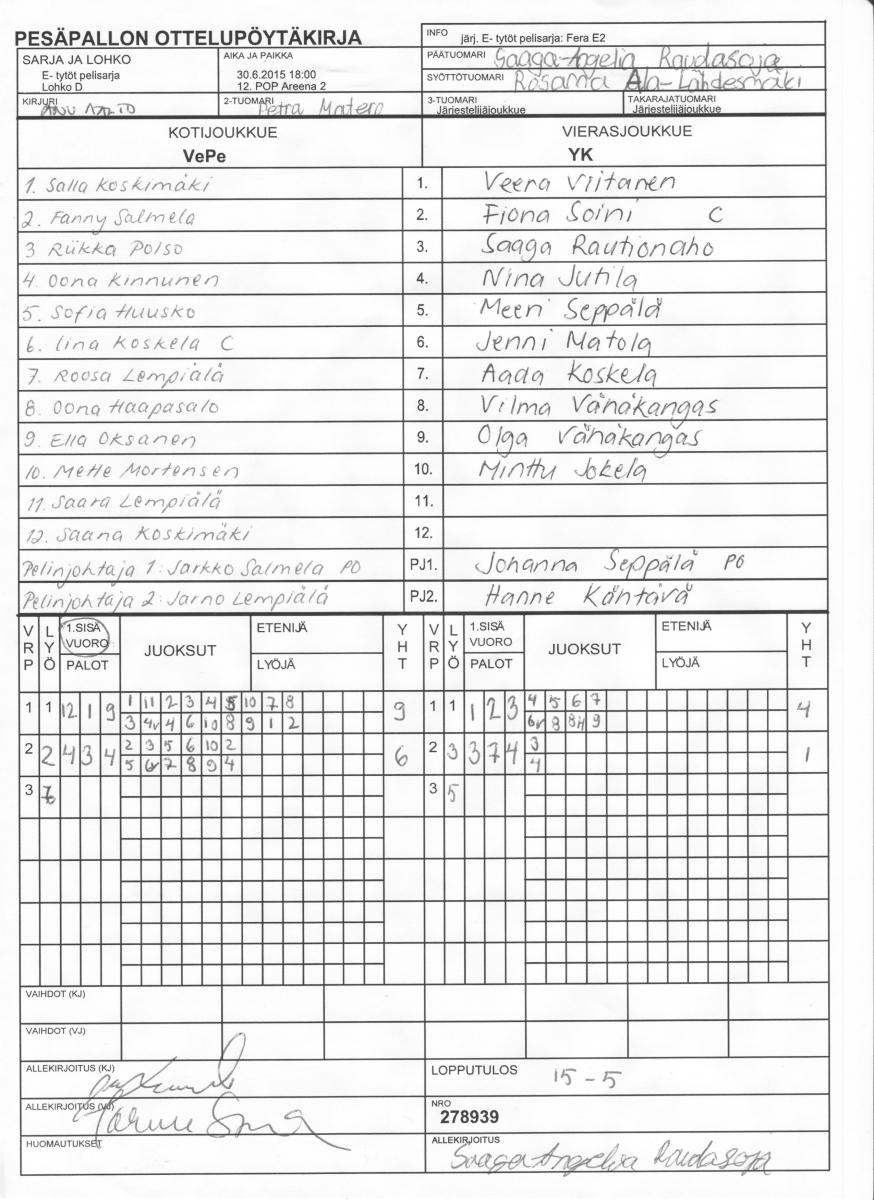 PESÄPALLON OTTELUPÖYTÄKIRJA
INFO järj. E- tytöt pelisarja: Fera E2
SARJA JA LOHKO
E- tytöt pelisarja
Lohko D
AIKA JA PAIKKA
30.6.2015 18:00
12. POP Areena 2
PÄÄTUOMARI Saaga-Angelia Raudasoja
SYÖTTÖTUOMARI Rosanna Ala-Lähdesmäki
KIRJURI ANU AALTO
2-TUOMARI Petra Matero
3-TUOMARI
Järjestelijäjoukkue
TAKARAJATUOMARI
Järjestelijäjoukkue
KOTIJOUKKUE VIERASJOUKKUE
VePe YK
1. Salla Koskimäki 1. Veera Viitanen
2. Fanny Salmela 2. Fiona Soini C
3 Riikka Polso 3. Saaga Rautionaho
4. Oona Kinnunen 4. Nina Jutila
5. Sofia Huusko 5. Meeri Seppälä
6. Iina Koskela C 6. Jenni Matola
7. Roosa Lempiälä 7. Aada Koskela
8. Oona Haapasalo 8. Vilma Vähäkangas
9. Ella Oksanen 9. Olga Vähäkangas
10. Mette Mortensen 10. Minttu Jokela
11. Saara Lempiälä 11.
12. Saana Koskimäki 12.
Pelinjohtaja 1: Jarkko Salmela PO PJ1. Johanna Seppälä PO
Pelinjohtaja 2: Jarno Lempiälä PJ2. Hanne Käntävä
VRP LYÖ 1.SISÄ VUORO PALOT JUOKSUT ETENIJÄ LYÖJÄ YHT VRP LYÖ 1.SISÄ VUORO PALOT JUOKSUT ETENIJÄ LYÖJÄ YHT
1 1 12 1 9 1 11 2 3 4 5 10 7 8 9 1 1 1 2 3 4 5 6 7 4
3 4v 4 6 10 8 9 1 2 6v 8 8H 9
2 2 4 3 4 2 3 5 6 10 2 6 2 3 3 7 4 3 1
5 6v 7 8 9 4 4
3 3 5
VAIHDOT (KJ)
VAIHDOT (VJ)
ALLEKIRJOITUS (KJ)
LOPPUTULOS 15-5
ALLEKIRJOITUS (VJ)
NRO
278939
HUOMAUTUKSET
ALLEKIRJOITUS
Saaga Angelia Raudasoja